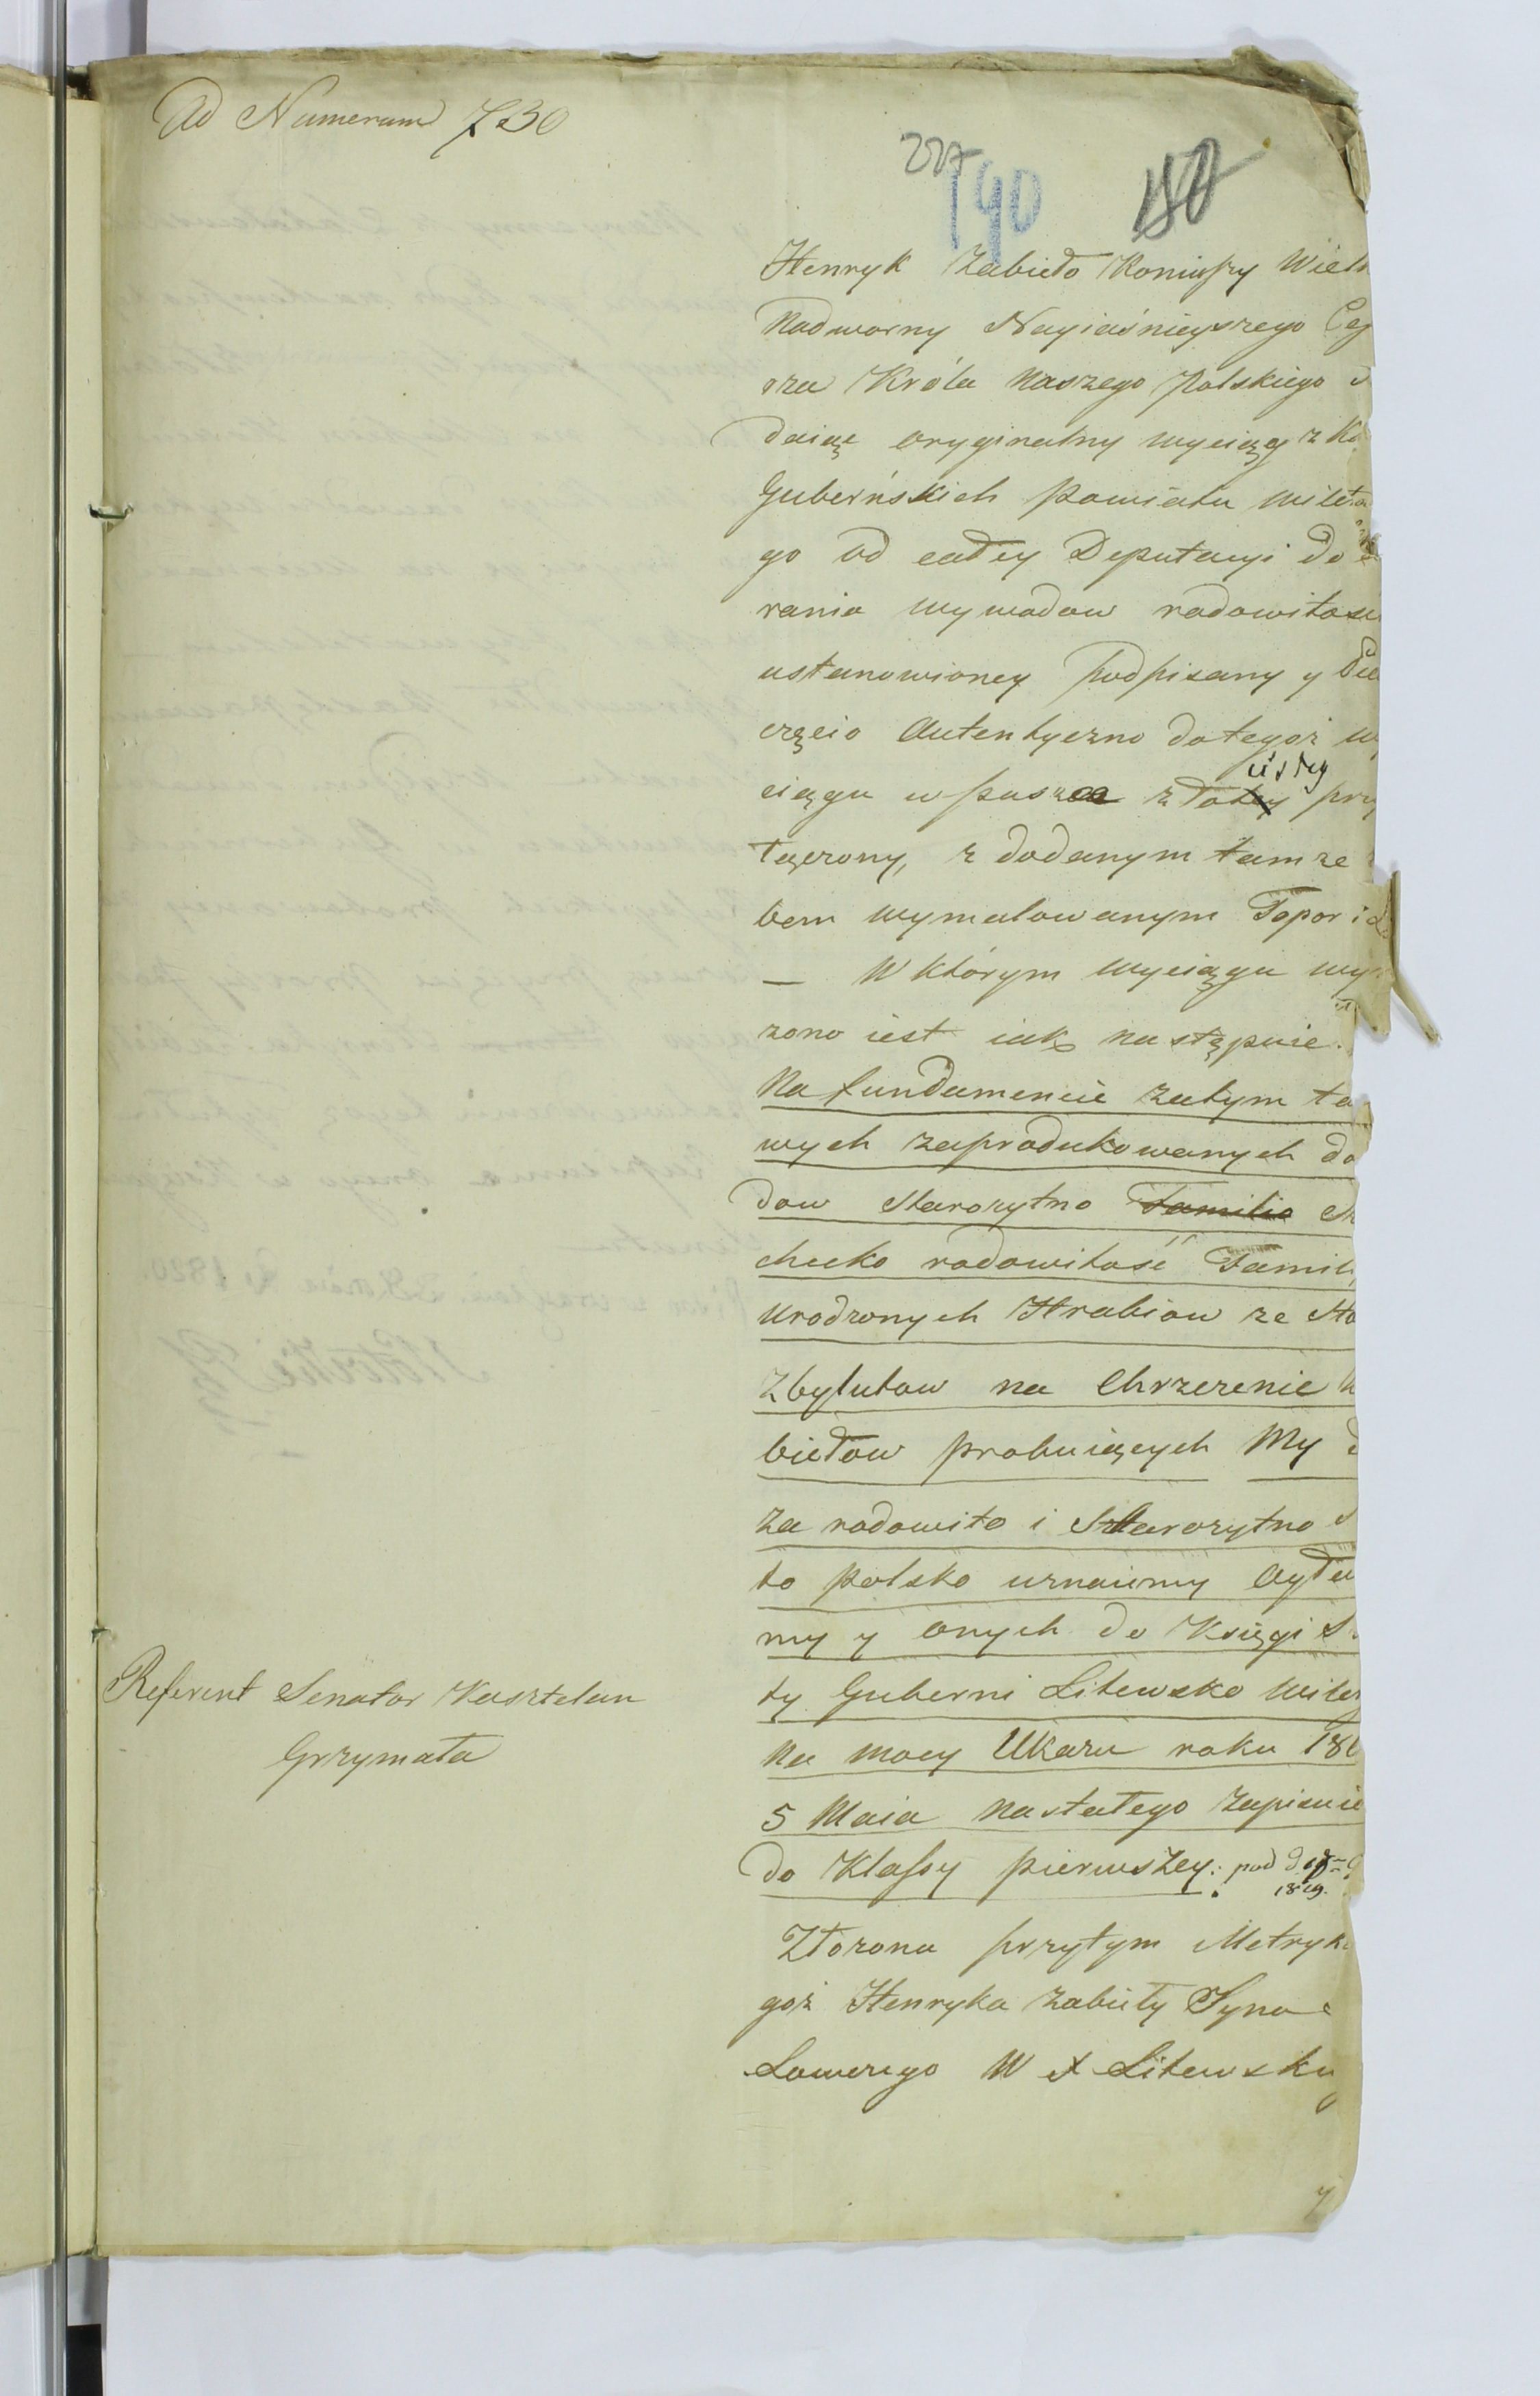 Ad Numerum 730
227
190
180
Henryk Zabiełło Koniuszy Wiel
Nadworny Nayiaśnieyszego Ces
rza Króla Naszego Polskiego
daiąc oryginalny wyciąg z
Guberńskich Powiatu Wileń
go od całey Deputacyi do
rania wywodow rodowitosc
ustanowioney podpisany y Pie
częcio Autentyczno do tegoż wy
ciągu w puszce złotey przy
łączony, z dodanym tamze
bem wymalowanym Topor i
— W którym wyciągu wyr
zono iest iak następuie.
Na fundamencie zatym ta
wych zaprodukowanych do
dow Starozytno Familio
checko rodowitość Famili
Urodzonych Hrabiow ze
Zbylutow na Chrzczenie
biełłow probuiących My
za rodowito i Starozytno
to Polsko uznaiemy ogła
my y onych do Księgi
ty Guberni Litewsko Wileń
Na mocy Ukazu roku 180
5 Maia nastałego zapisuie
do Klassy pierwszey: pod
1819.
Złozona przytym Metryka
goż Henryka Zabiełły Syna
Łowczego W X Litewsku
Referent Senator Kasztelan
Grzymała